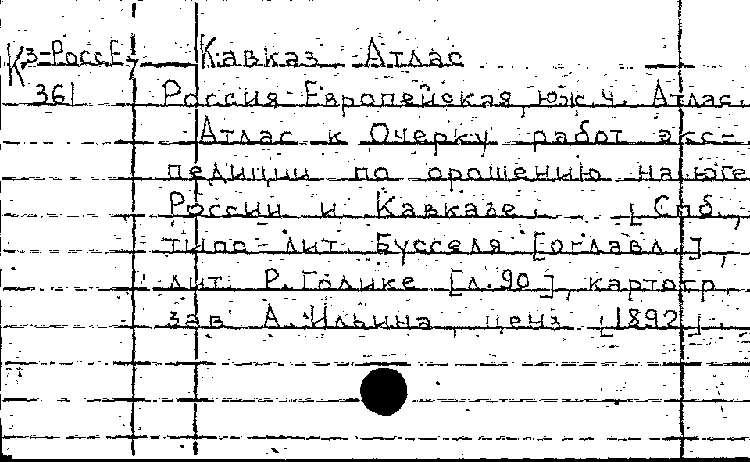 К 3-РоссЕ-7 Кавказ - Атлас
361 Россия Европейская, юж.ч. Атлас.
Атлас к Очерку работ экс-
педиции по орошению на юге
России и Кавказе. [Спб.,
типо-лит. Бусселя [оглавл.],
лит. Р. Голике [л.90], картогр.
зав. А. Ильина, ценз. [1892].